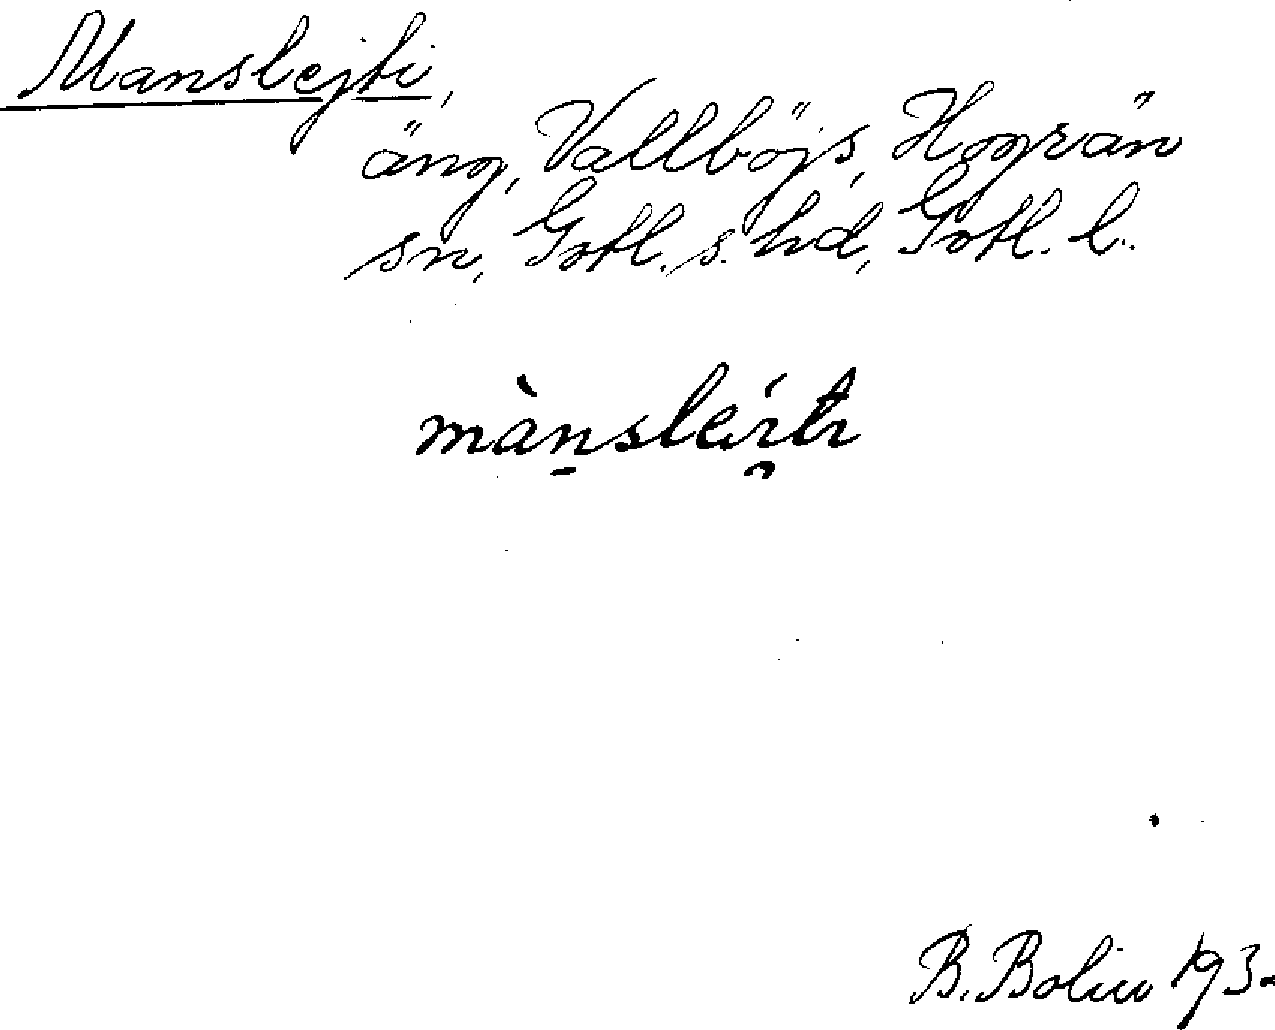 Manslejti,
äng, Vallböjs, Hogrän
sn, Gotl. s. hd, Gotl. l.
B. Bolin 193